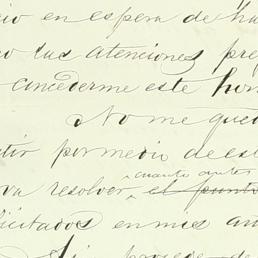 cio en espera de ha
o las atenciones pre
concederme este hon
No me qued
tir por medio de es
va resolver cuanto antes el punto
licitados en mis an